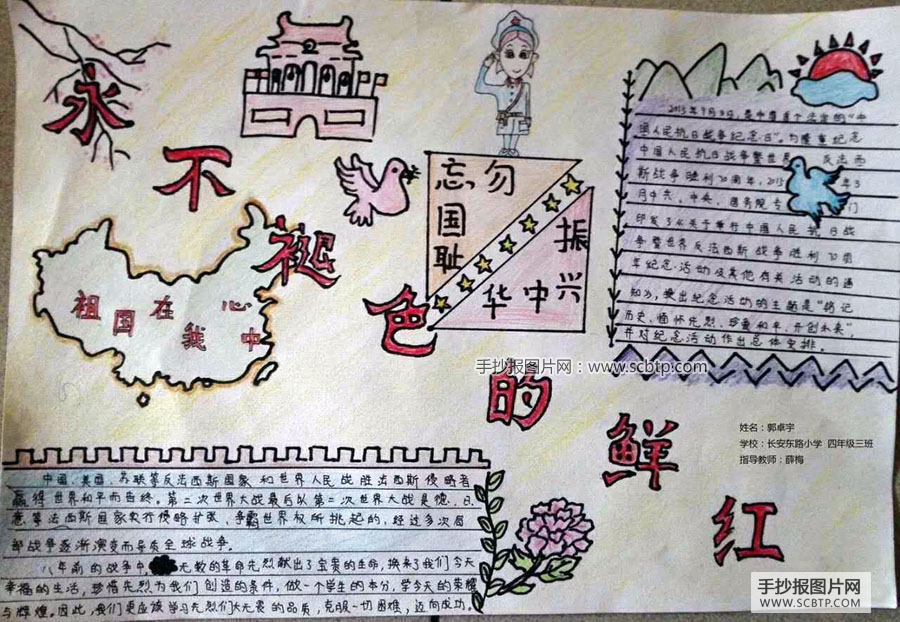 永不褪色的鲜红
勿忘国耻
振兴中华
祖国在我心中
2015年9月3日,是中国首个法定的“中
国人民抗日战争纪念日”。为隆重纪念
中国人民抗日战争暨世界 反法西
斯战争胜利70周年,2015 年3
月中共,中央,国务院专 门
印发了《关于举行中国人民抗日战
争暨世界反法西斯战争胜利70周
年纪念活动及其他有关活动的通
知》,提出纪念活动的主题是“铭记
历史,缅怀先烈,珍爱和平,开创未来”
并对纪念活动作出总体安排。
手抄报图片网:www.scbtp.com
姓名:郭卓宇
学校:长安东路小学 四年级三班
指导教师:薛梅
中国、美国、苏联等反法西斯国家和世界人民战胜法西斯侵略者
赢得世界和平而告终。第二次世界大战最后以第二次世界大战是德、日、
意等法西斯国家实行侵略扩张,争霸世界权所挑起的,经过多次局
部战争逐渐演变而导质全球战争。
八年前的战争中,无数的革命先烈献出了宝贵的生命,换来了我们今天
幸福的生活,珍惜先烈为我们创造的条件,做一个学生的本分,学今天的荣耀
与辉煌。因此,我们更应该学习先烈们大无畏的品质,克服一切困难,迈向成功。
手抄报图片网
SCBTP.COM